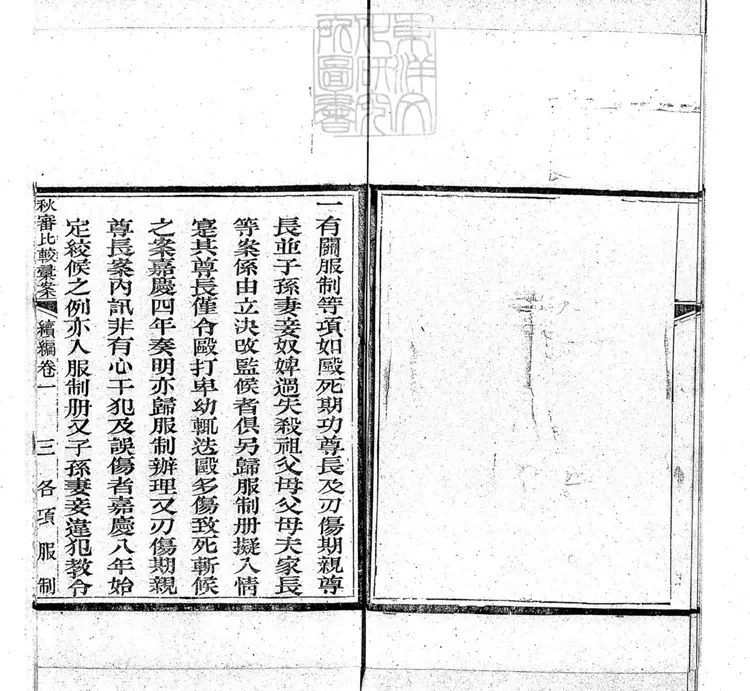 東洋文
化研究
所圖書
一有關服制等項如毆死期功尊長及刃傷期親尊
長並子孫妻妾奴婢過失殺祖父母父母夫家長
等案係由立決改監候者俱另歸服制册擬入情
寔其尊長僅令毆打卑幼輒迭毆多傷致死斬候
之案嘉慶四年奏明亦歸服制辦理又刃傷期親
尊長案內訊非有心干犯及誤傷者嘉慶八年始
定絞候之例亦入服制册又子孫妻妾違犯教令
秋審比較彙案 續編卷一 三 各項服制